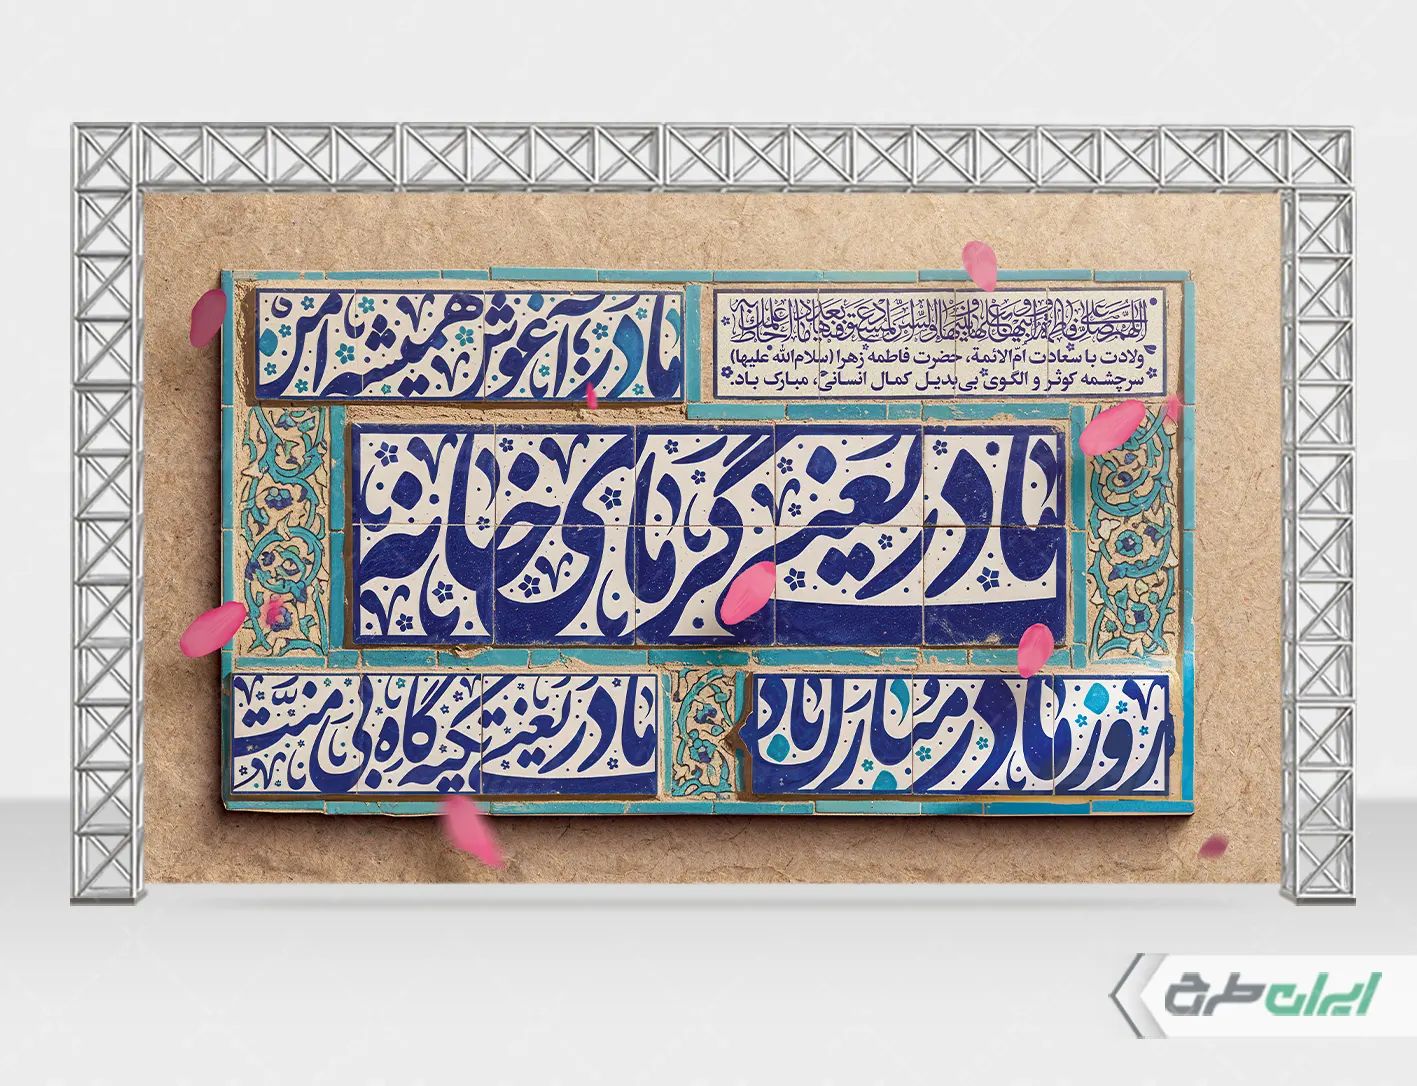 اللهم صل علی فاطمة و ابیها و بعلها و بنیها و السر المستودع فیها بعدد ما احاط به علمک
ولادت با سعادت ام‌الائمة، حضرت فاطمه زهرا (سلام‌الله علیها)
سرچشمه کوثر و الگوی بی‌بدیل کمال انسانی، مبارک باد.
مادر؛ آغوش همیشه امن
مادر یعنی گرمای خانه
روز مادر مبارک باد
مادر یعنی تکیه گاه بی منّت
ایران طرح